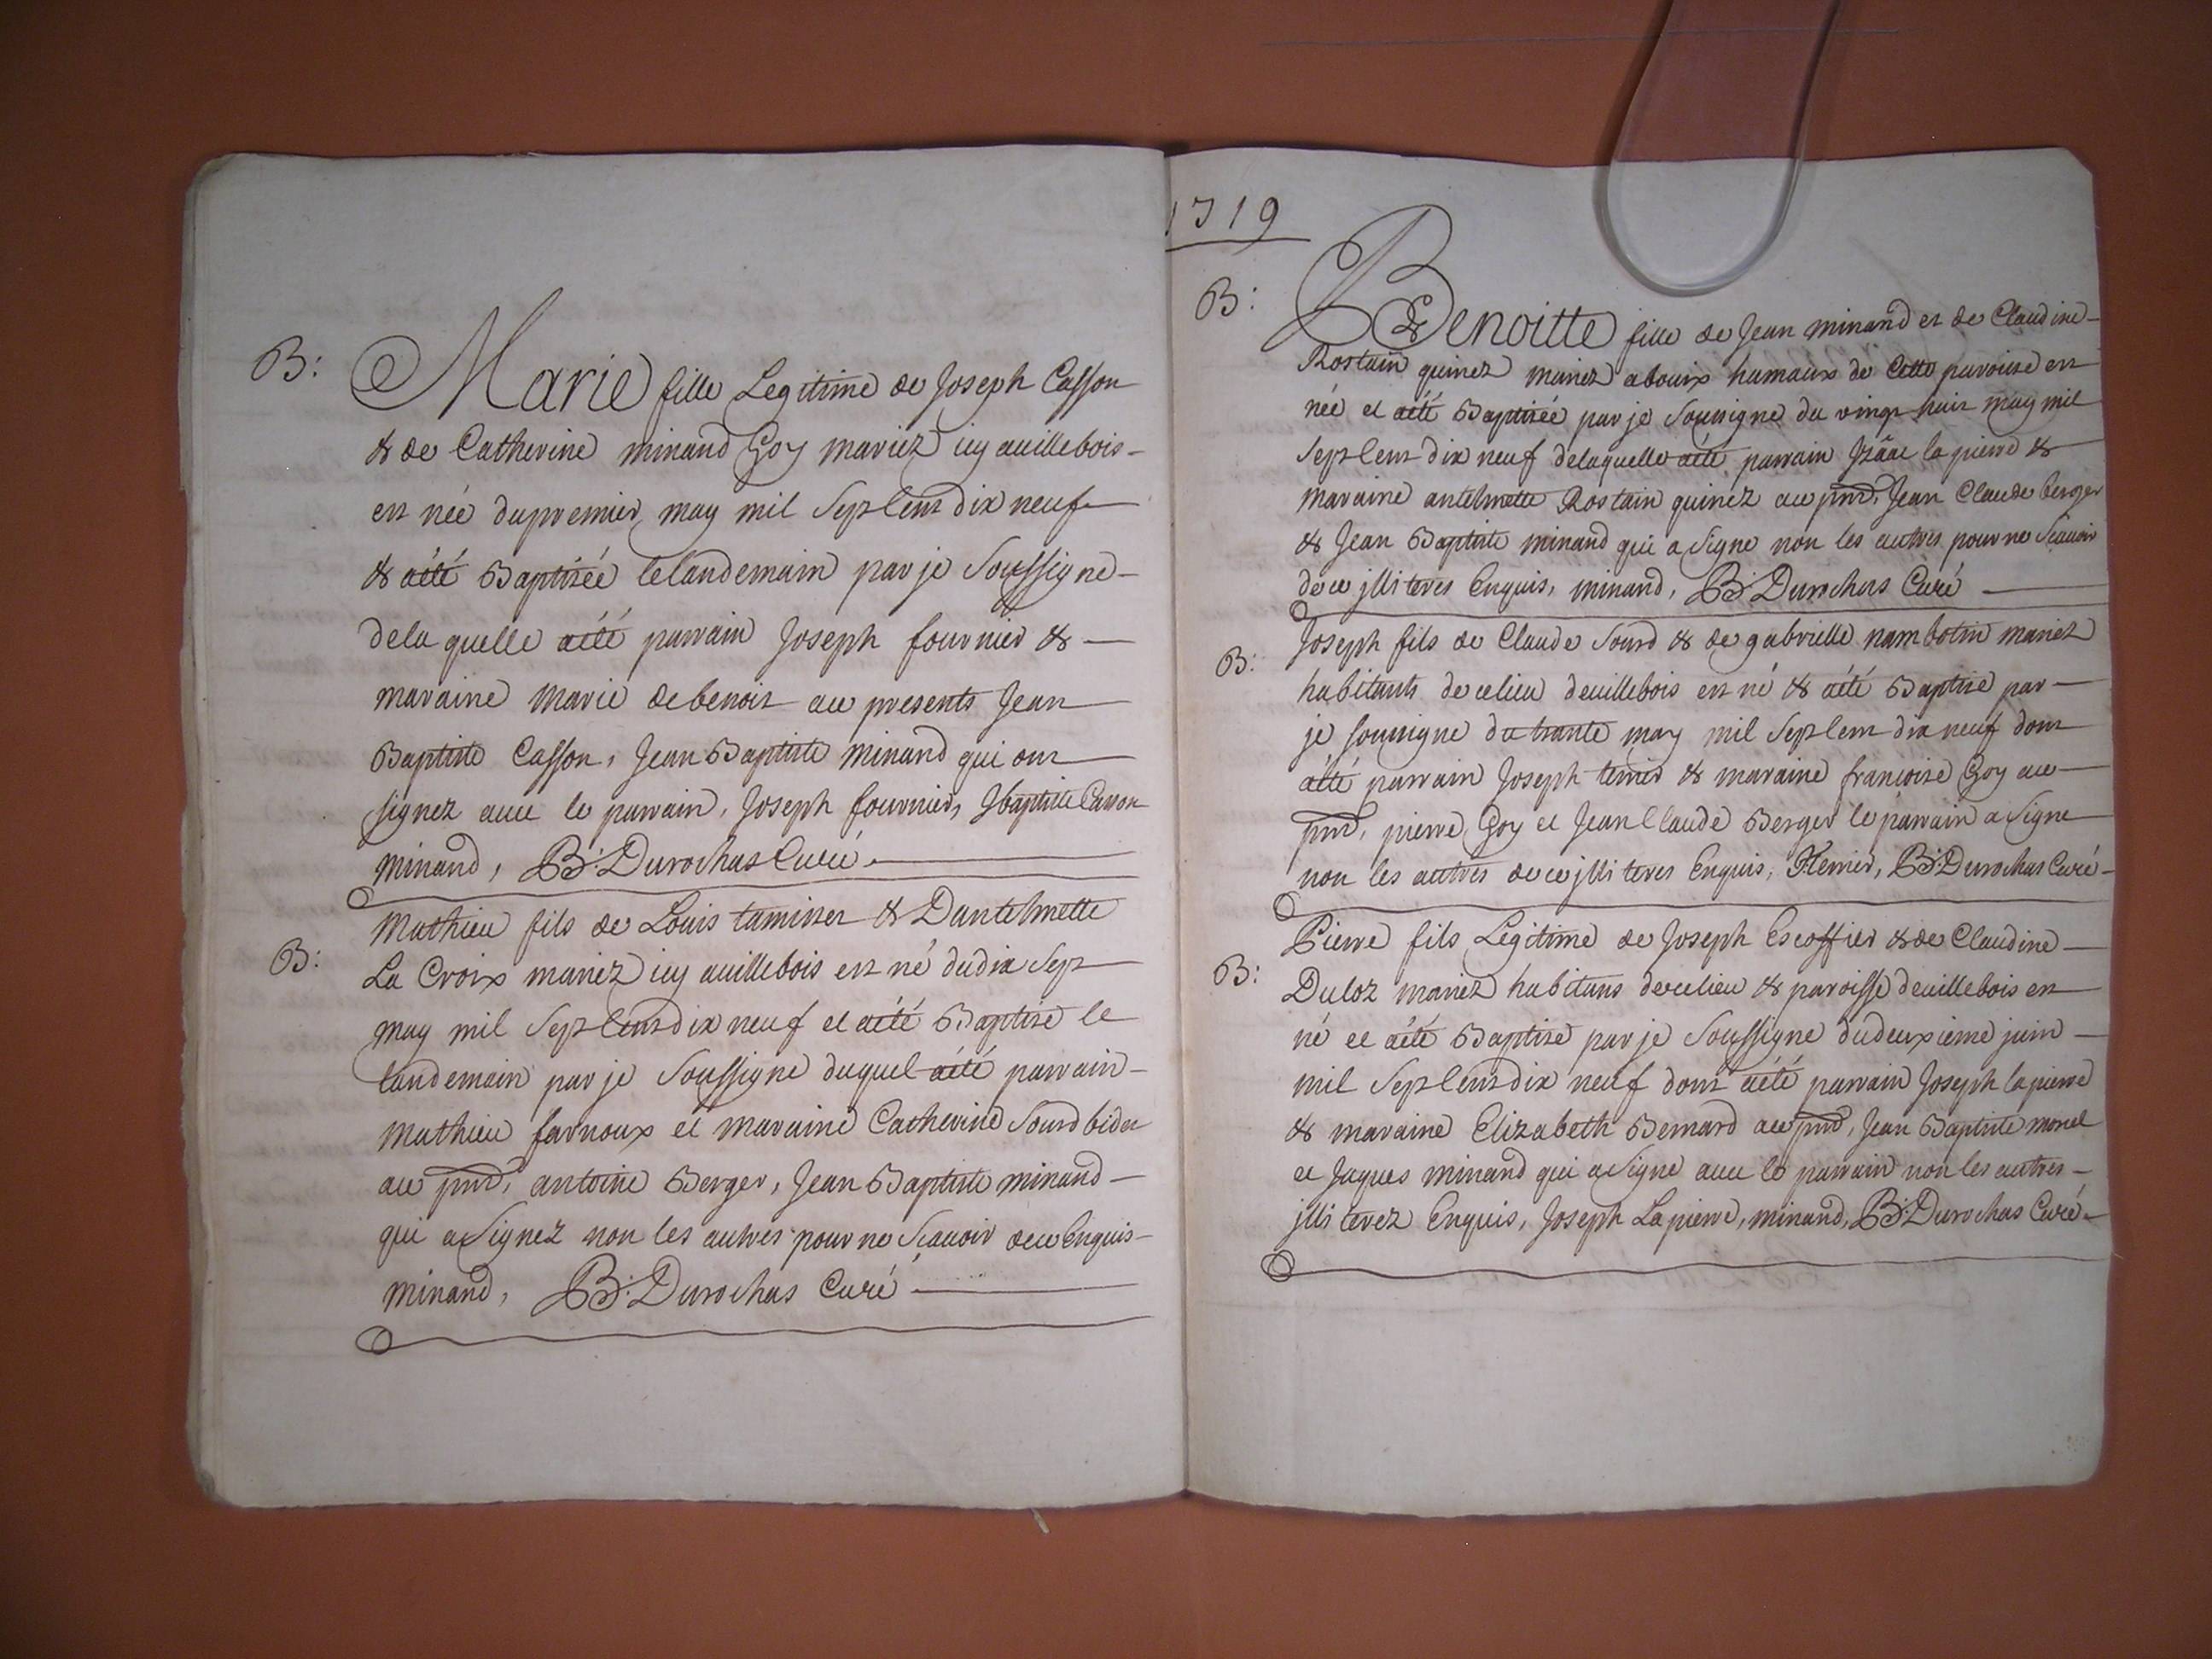 B:
Marie fille Legitime de Joseph Casson
& de Catherine minand Goy mariez icy auillebois
est née dupremier may mil Sept Cent dix neuf
& aété Baptisée lelandemain par je Soussigne
dela quelle aété parrain Joseph fournier &
maraine Marie debenoit aue presents Jean
Baptiste Casson, Jean Baptiste minand qui ont
signez auec le parrain, Joseph fournier, JBaptiste Casson
minand, B: Durochas Curé
Mathieu fils de Louis tamisser & Dantelmette
B:
La Croix mariez icy auillebois est né dudix Sept
may mil Sept Cent dix neuf et aété Baptise le
landemain par je Soussigne duquel aété parrain
Mathieu farnoux et maraine Catherine Sourd
aue pnts, antoine Berger, Jean Baptiste minand
qui a Signez non les autres pour ne Scauoir dece Enquis
minand, B: Durochas Curé
1719
B:
Benoitte fille de Jean minand et de Claudine
Rostain quinez mariez hamaux de Cette paroisse est
née et aété Baptisée par je Soussigne du vingt huit may mil
Sept Cent dix neuf delaquelle aété parrain Izâac lapierre &
Maraine antelmette Rostain quinez aue pnts, Jean Claude berger
& Jean Baptiste minand qui a Signe non les autres pour ne Scauoir
dece jlliteres Enquis, minand, B: Durochas Curé
Joseph fils de Claude Sourd & de gabrielle nambotin mariez
B:
habitants decelieu deuillebois est né & aété Baptise par
je soussigne du trante may mil Sept Cent dix neuf dont
aété parrain Joseph terrier & maraine francoise Goy aue
pnts, pierre Goy et Jean Claude Berger le parrain a Signe
non les autres dece jlliteres Enquis, JTerrier, B: Durochas Curé
Pierre fils Legitime de Joseph Escoffier & de Claudine
B:
Duloz mariez habitans decelieu & paroisse deuillebois est
né et aété Baptise par je Soussigne dudeuxieme juin
mil Sept Cent dix neuf dont aété parrain Joseph lapierre
& maraine Elizabeth Bernard aue pnts, Jean Baptiste morel
et Jaques minand qui a Signe auec le parrain non les autres
jlliterez Enquis, Joseph Lapierre, minand, B: Durochas Curé